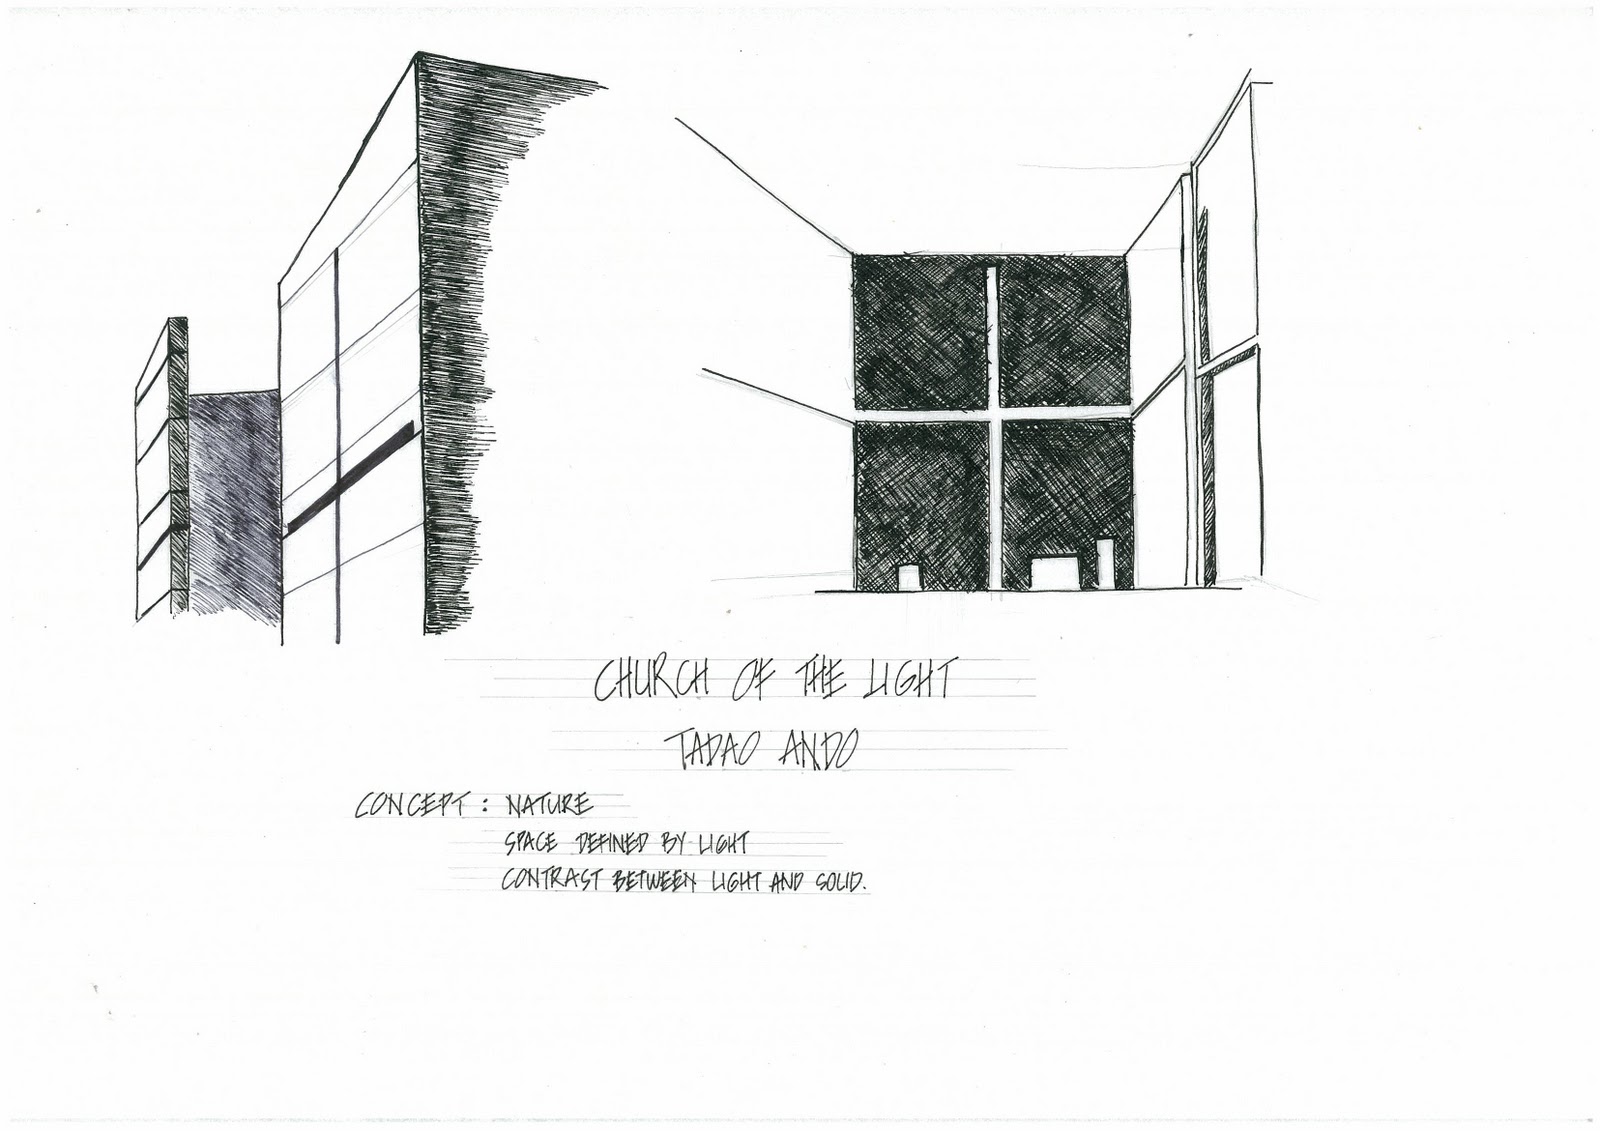 CHURCH OF THE LIGHT
TADAO ANDO
CONCEPT : NATURE
SPACE DEFINED BY LIGHT
CONTRAST BETWEEN LIGHT AND SOLID.